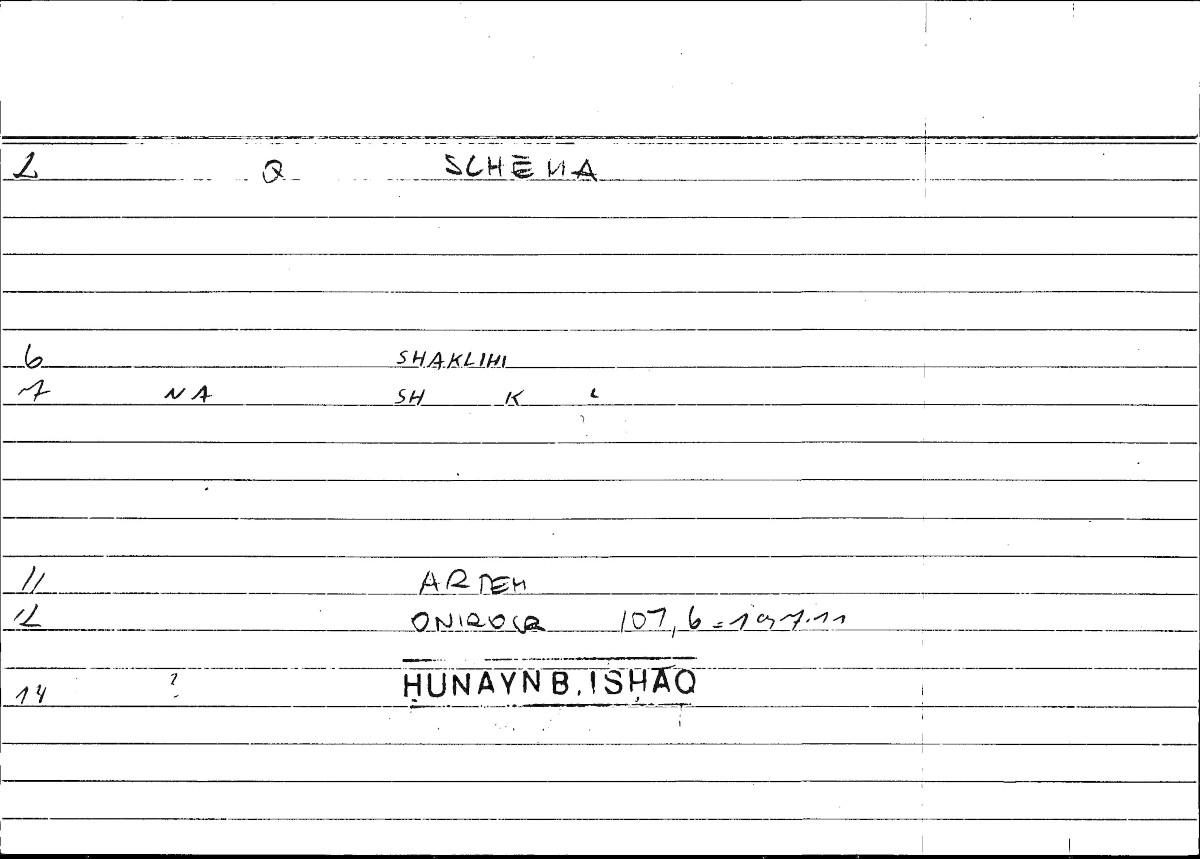 2 Q SCHĒMA
6 SHAKLIHI
7 NA SH K L
11 ARTEM
12 ONIROCR 107,6 = 197.11
14 ? ḤUNAYN B. ISḤĀQ